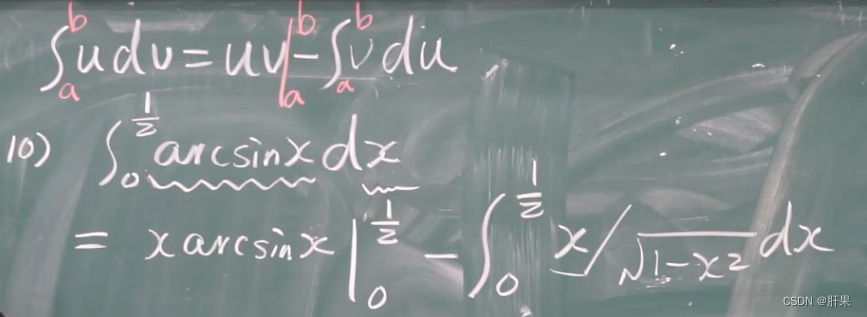 ∫ₐᵇ u dv = uv|ₐᵇ - ∫ₐᵇ v du
10) ∫₀^{1/2} arcsinx dx
= x arcsinx |₀^{1/2} - ∫₀^{1/2} x/√(1-x²) dx
CSDN @肝果